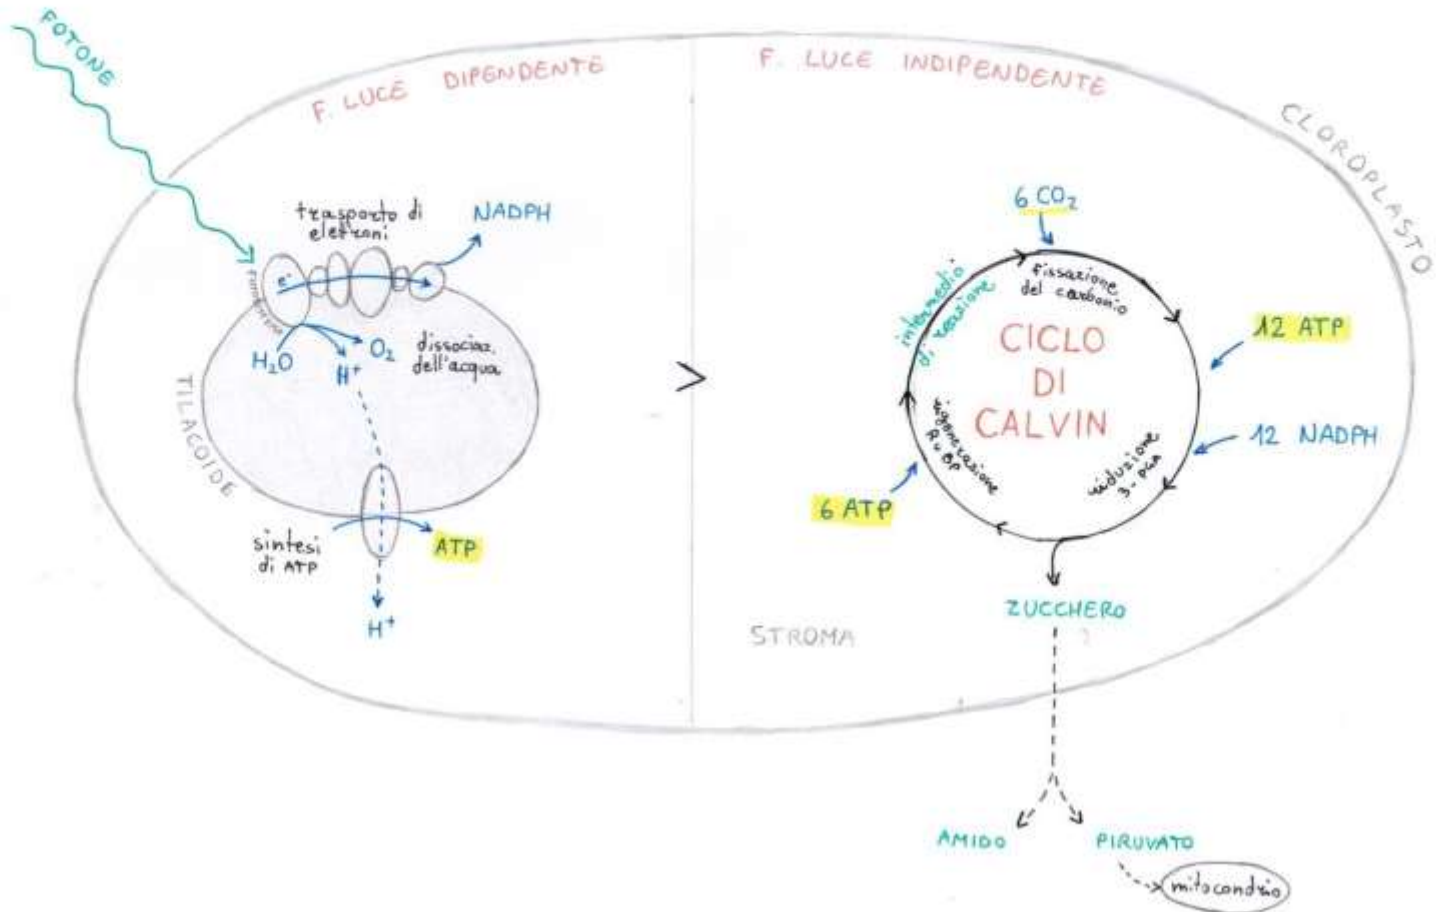 FOTONE
F. LUCE DIPENDENTE
F. LUCE INDIPENDENTE
CLOROPLASTO
trasporto di
elettroni
NADPH
e⁻
H₂O
H⁺
O₂
dissociaz.
dell'acqua
TILACOIDE
sintesi
di ATP
ATP
H⁺
>
6 CO₂
fissazione
del carbonio
intermedio
di reazione
CICLO
DI
CALVIN
12 ATP
12 NADPH
riduzione
3-PGA
rigenerazione
RuBP
6 ATP
ZUCCHERO
STROMA
AMIDO
PIRUVATO
mitocondrio